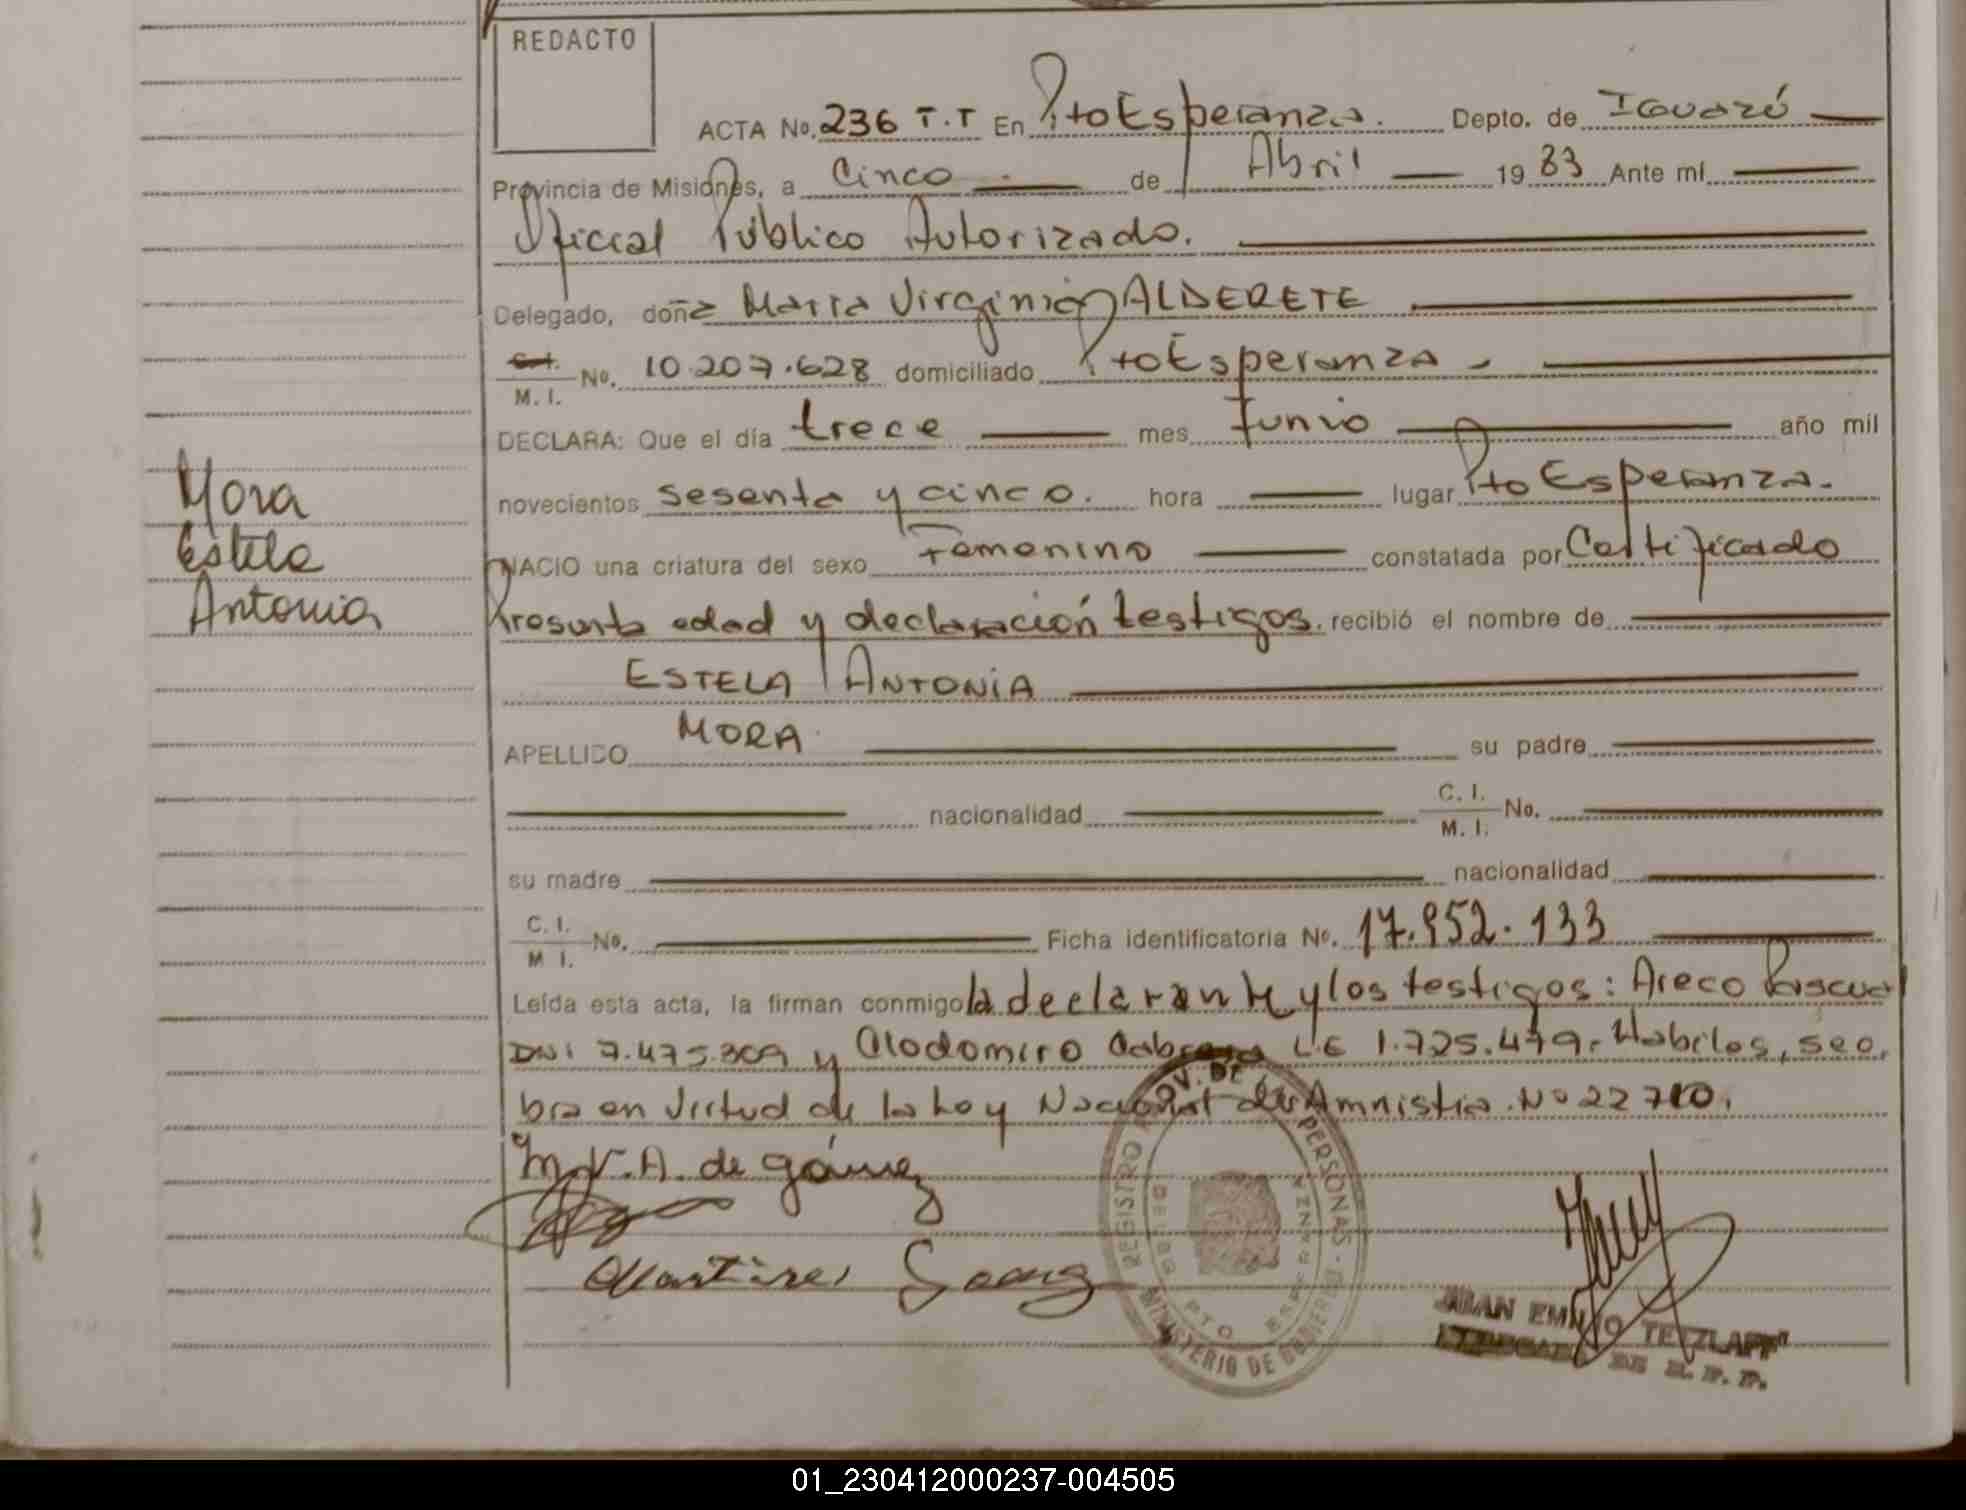 REDACTO
ACTA No. 236 T.T En Pto Esperanza. Depto. de Iguazú
Provincia de Misiones, a Cinco de Abril 1983 Ante mí
Oficial Público Autorizado.
Delegado, doña Maria Virginia ALDERETE
C. I.
M. I. No. 10.207.628 domiciliado Pto Esperanza
DECLARA: Que el día trece mes Junio año mil
novecientos sesenta y cinco. hora lugar Pto Esperanza.
NACIO una criatura del sexo Femenino constatada por Certificado
Presunta edad y declaración testigos. recibió el nombre de
ESTELA ANTONIA
APELLIDO MORA su padre
nacionalidad C. I.
M. I. No.
su madre nacionalidad
C. I.
M I. No. Ficha identificatoria No. 17.952.133
Leída esta acta, la firman conmigo la declarante y los testigos: Areco Pascual
DNI 7.475.309 y Clodomiro Cabrera L.E 1.725.479. Habiles, seo.
bra en virtud de la Ley Nacional de Amnistia. No 22710.
M.V.A. de Gómez
Mora
Estela
Antonia
REGISTRO PROV. DE LAS PERSONAS
MINISTERIO DE GOBIERNO
PTO ESPERANZA
JUAN EMILIO TETZLAFF
DE R. P. P.
01_230412000237-004505